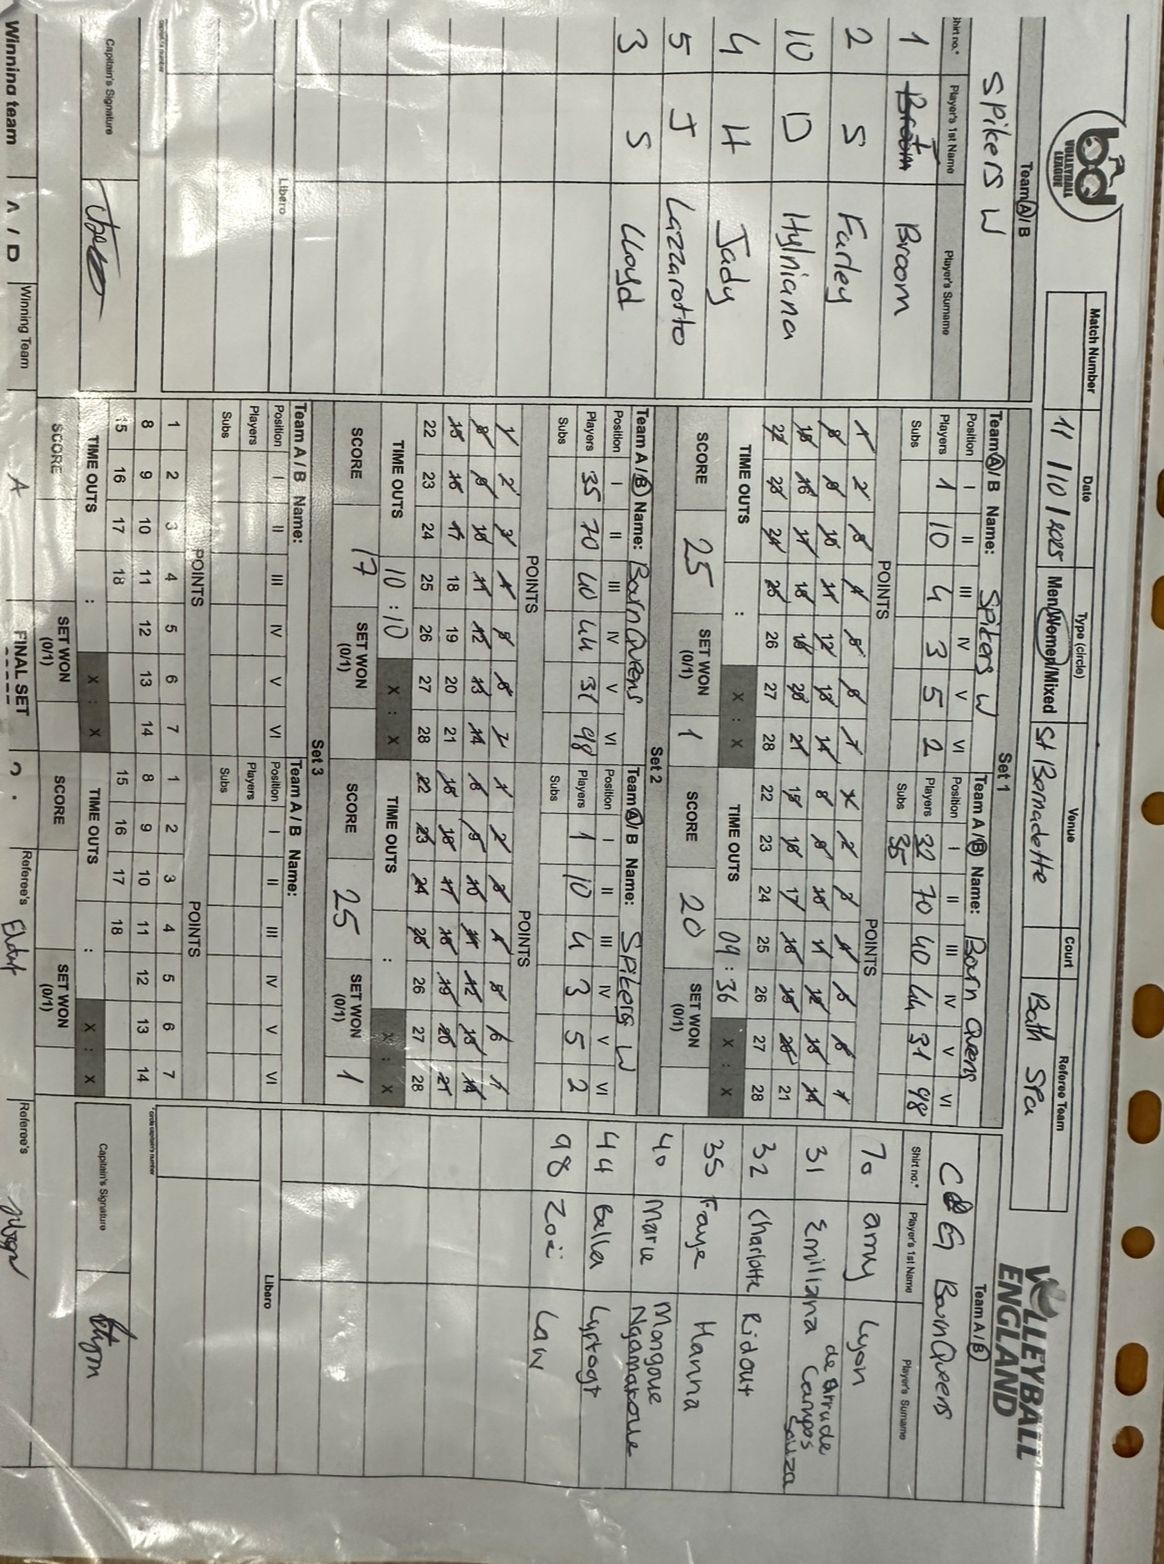 bd VOLLEYBALL LEAGUE
Match Number Date Type (circle) Venue Court Referee Team
11/10/2025 Men/Women/Mixed St Bernadette Bath Spa
VOLLEYBALL ENGLAND
Team A/B
Spikers W
Shirt no.* Player's 1st Name Player's Surname
1 Broom
2 S Farley
10 D Hylniana
4 H Jady
5 J Lazzarotto
3 S Lloyd
Libero
Captain's Signature
Set 1
Team A/B Name: Spikers W
Position I II III IV V VI
Players 1 10 4 3 5 2
Subs
POINTS
1 2 3 4 5 6 7
8 9 10 11 12 13 14
15 16 17 18 19 20 21
22 23 24 25 26 27 28
TIME OUTS : X : X
SCORE 25 SET WON (0/1) 1
Team A/B Name: Barn Queens
Position I II III IV V VI
Players 32 70 40 44 31 98
Subs 35
POINTS
1 2 3 4 5 6 7
8 9 10 11 12 13 14
15 16 17 18 19 20 21
22 23 24 25 26 27 28
TIME OUTS 09:36 X : X
SCORE 20 SET WON (0/1)
Set 2
Team A/B Name: Barn Queens
Position I II III IV V VI
Players 35 70 40 44 31 98
Subs
POINTS
1 2 3 4 5 6 7
8 9 10 11 12 13 14
15 16 17 18 19 20 21
22 23 24 25 26 27 28
TIME OUTS 10:10 X : X
SCORE 17 SET WON (0/1)
Team A/B Name: Spikers W
Position I II III IV V VI
Players 1 10 4 3 5 2
Subs
POINTS
1 2 3 4 5 6 7
8 9 10 11 12 13 14
15 16 17 18 19 20 21
22 23 24 25 26 27 28
TIME OUTS : X : X
SCORE 25 SET WON (0/1) 1
Set 3
Team A/B Name:
Position I II III IV V VI
Players
Subs
POINTS
1 2 3 4 5 6 7
8 9 10 11 12 13 14
15 16 17 18
TIME OUTS : X : X
SCORE SET WON (0/1)
Team A/B Name:
Position I II III IV V VI
Players
Subs
POINTS
1 2 3 4 5 6 7
8 9 10 11 12 13 14
15 16 17 18
TIME OUTS : X : X
SCORE SET WON (0/1)
Team A/B
C&G Barn Queens
Shirt no.* Player's 1st Name Player's Surname
70 amy Lyon
31 Emiliana de Arruda Campos Souza
32 Charlotte Ridout
35 Faye Hanna
40 Marie Mongoue
44 Bella
98 Zoë Law
Libero
Captain's Signature
Winning team Winning Team A FINAL SET Referee's Referee's